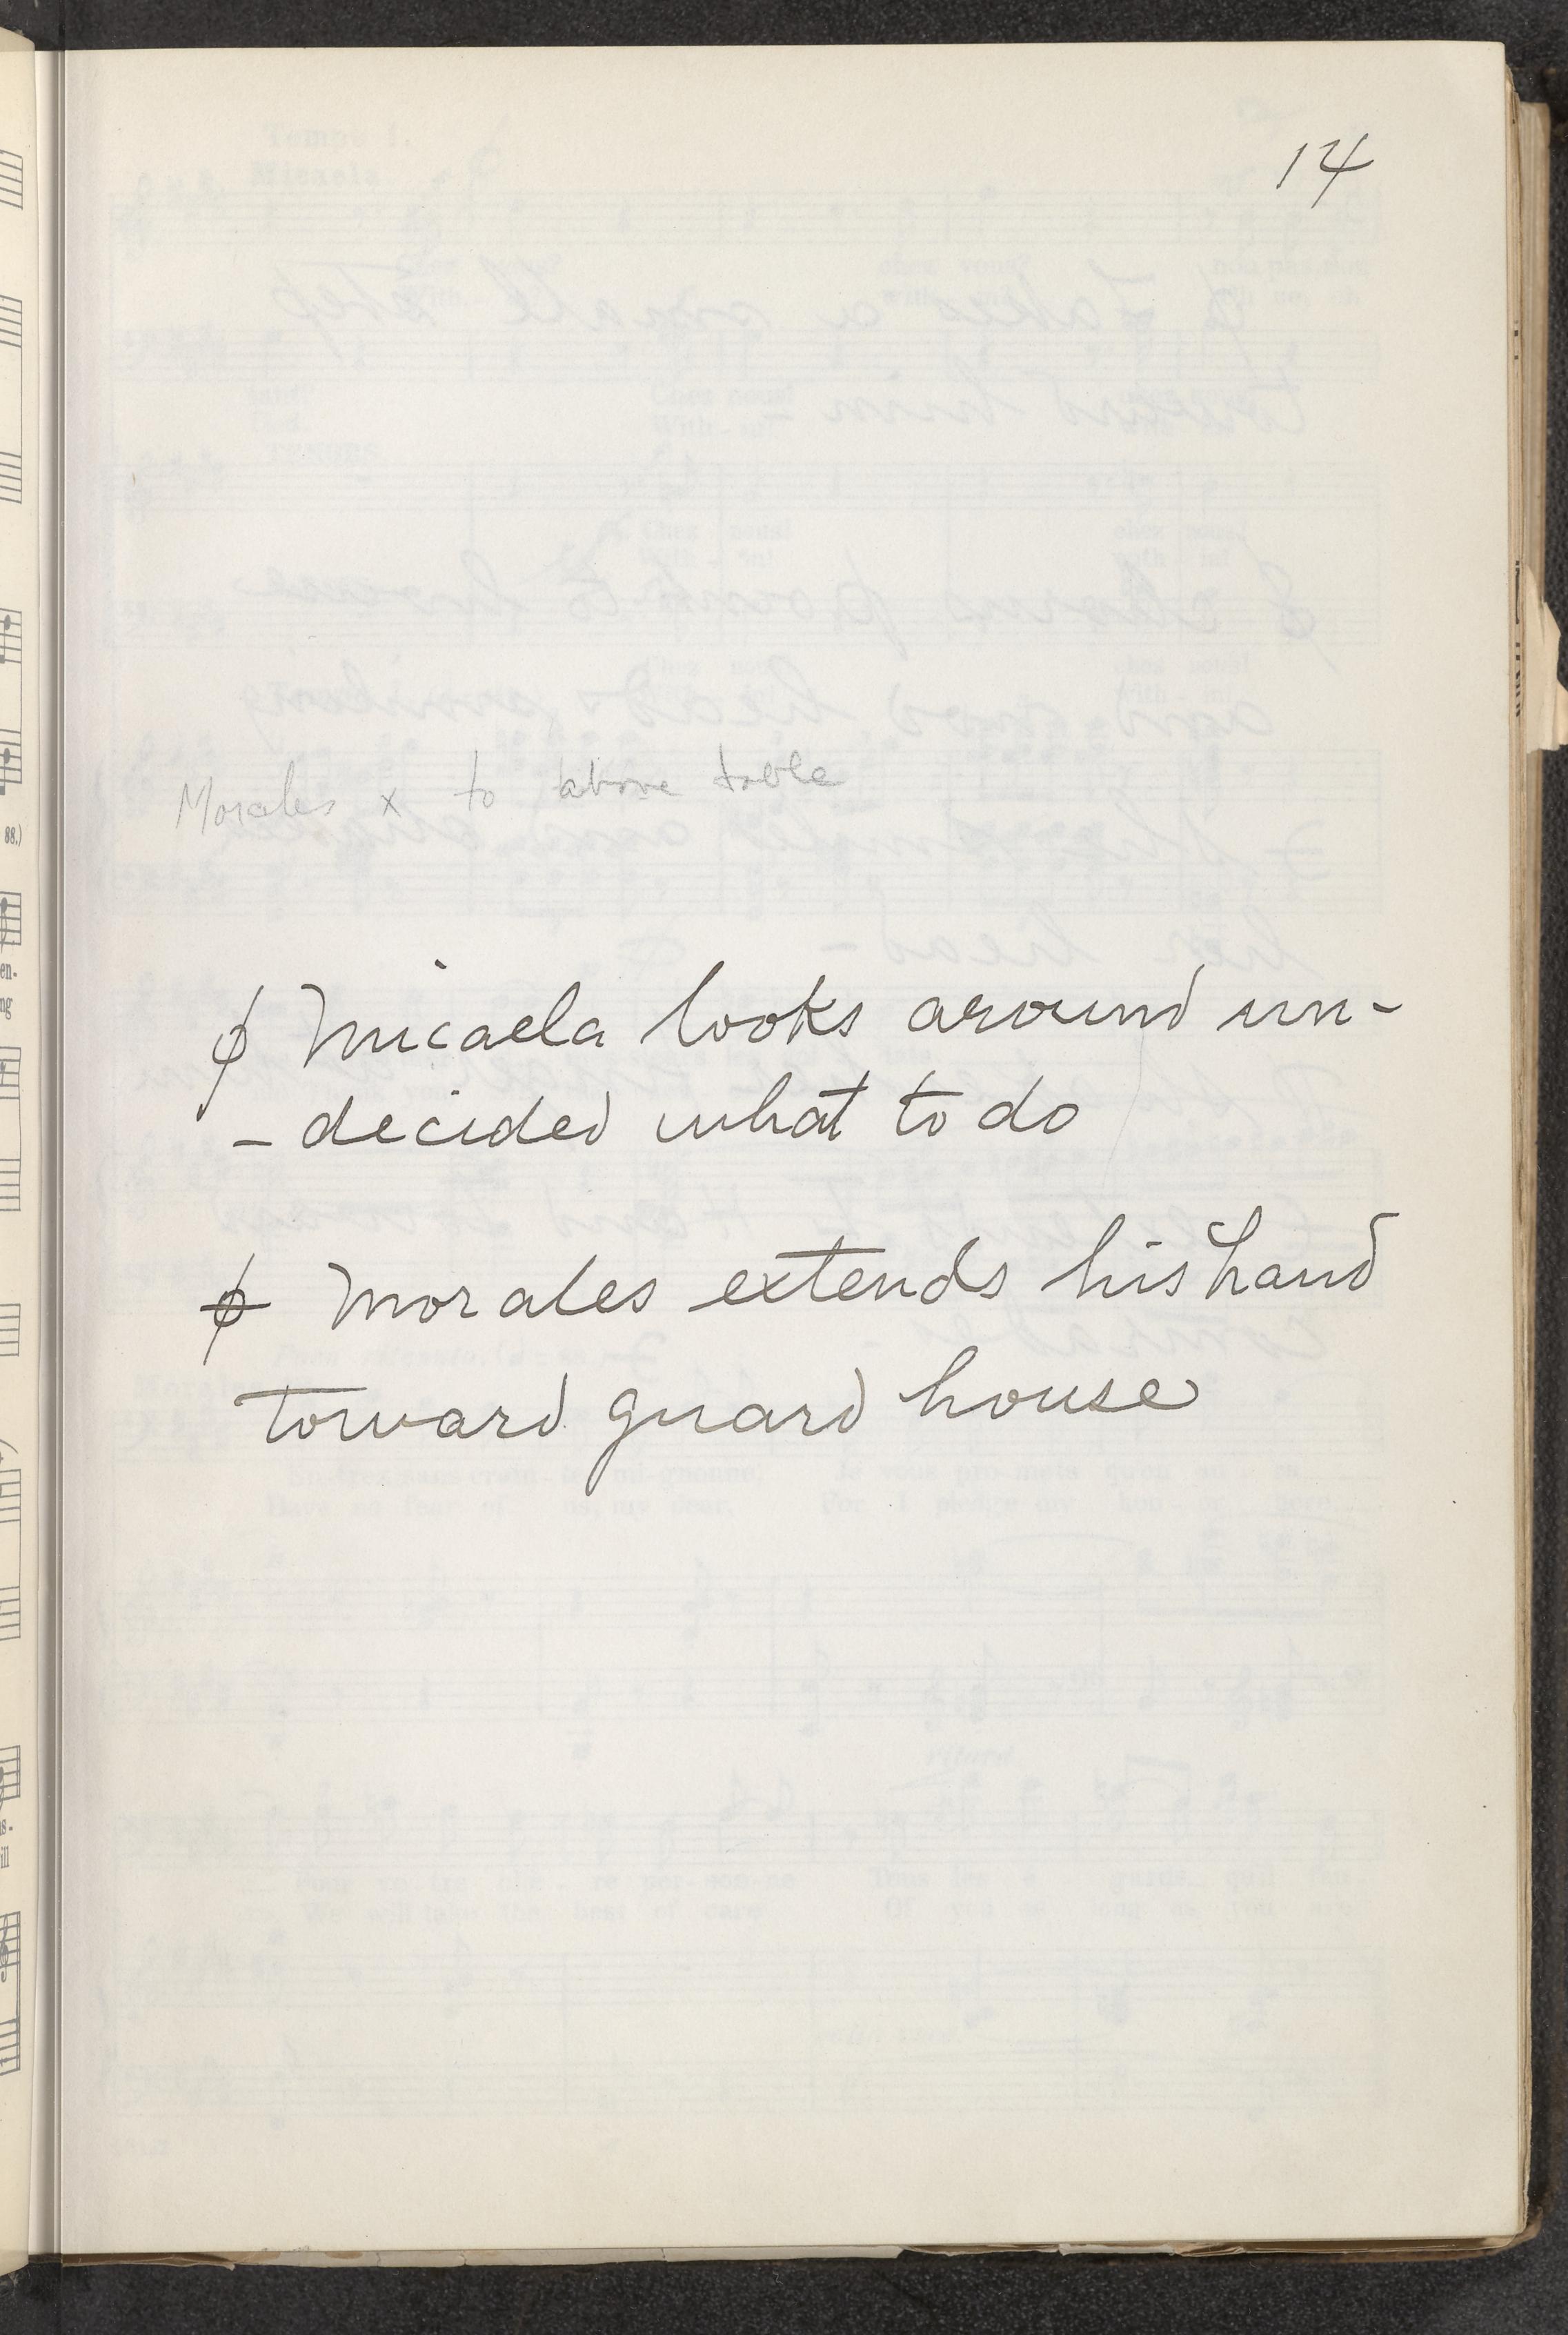 14
Morales x to above table
ϕ Micaela looks around un-
- decided what to do
ϕ Morales extends his hand
toward guard house
88.)
en.
ng
s.
ill